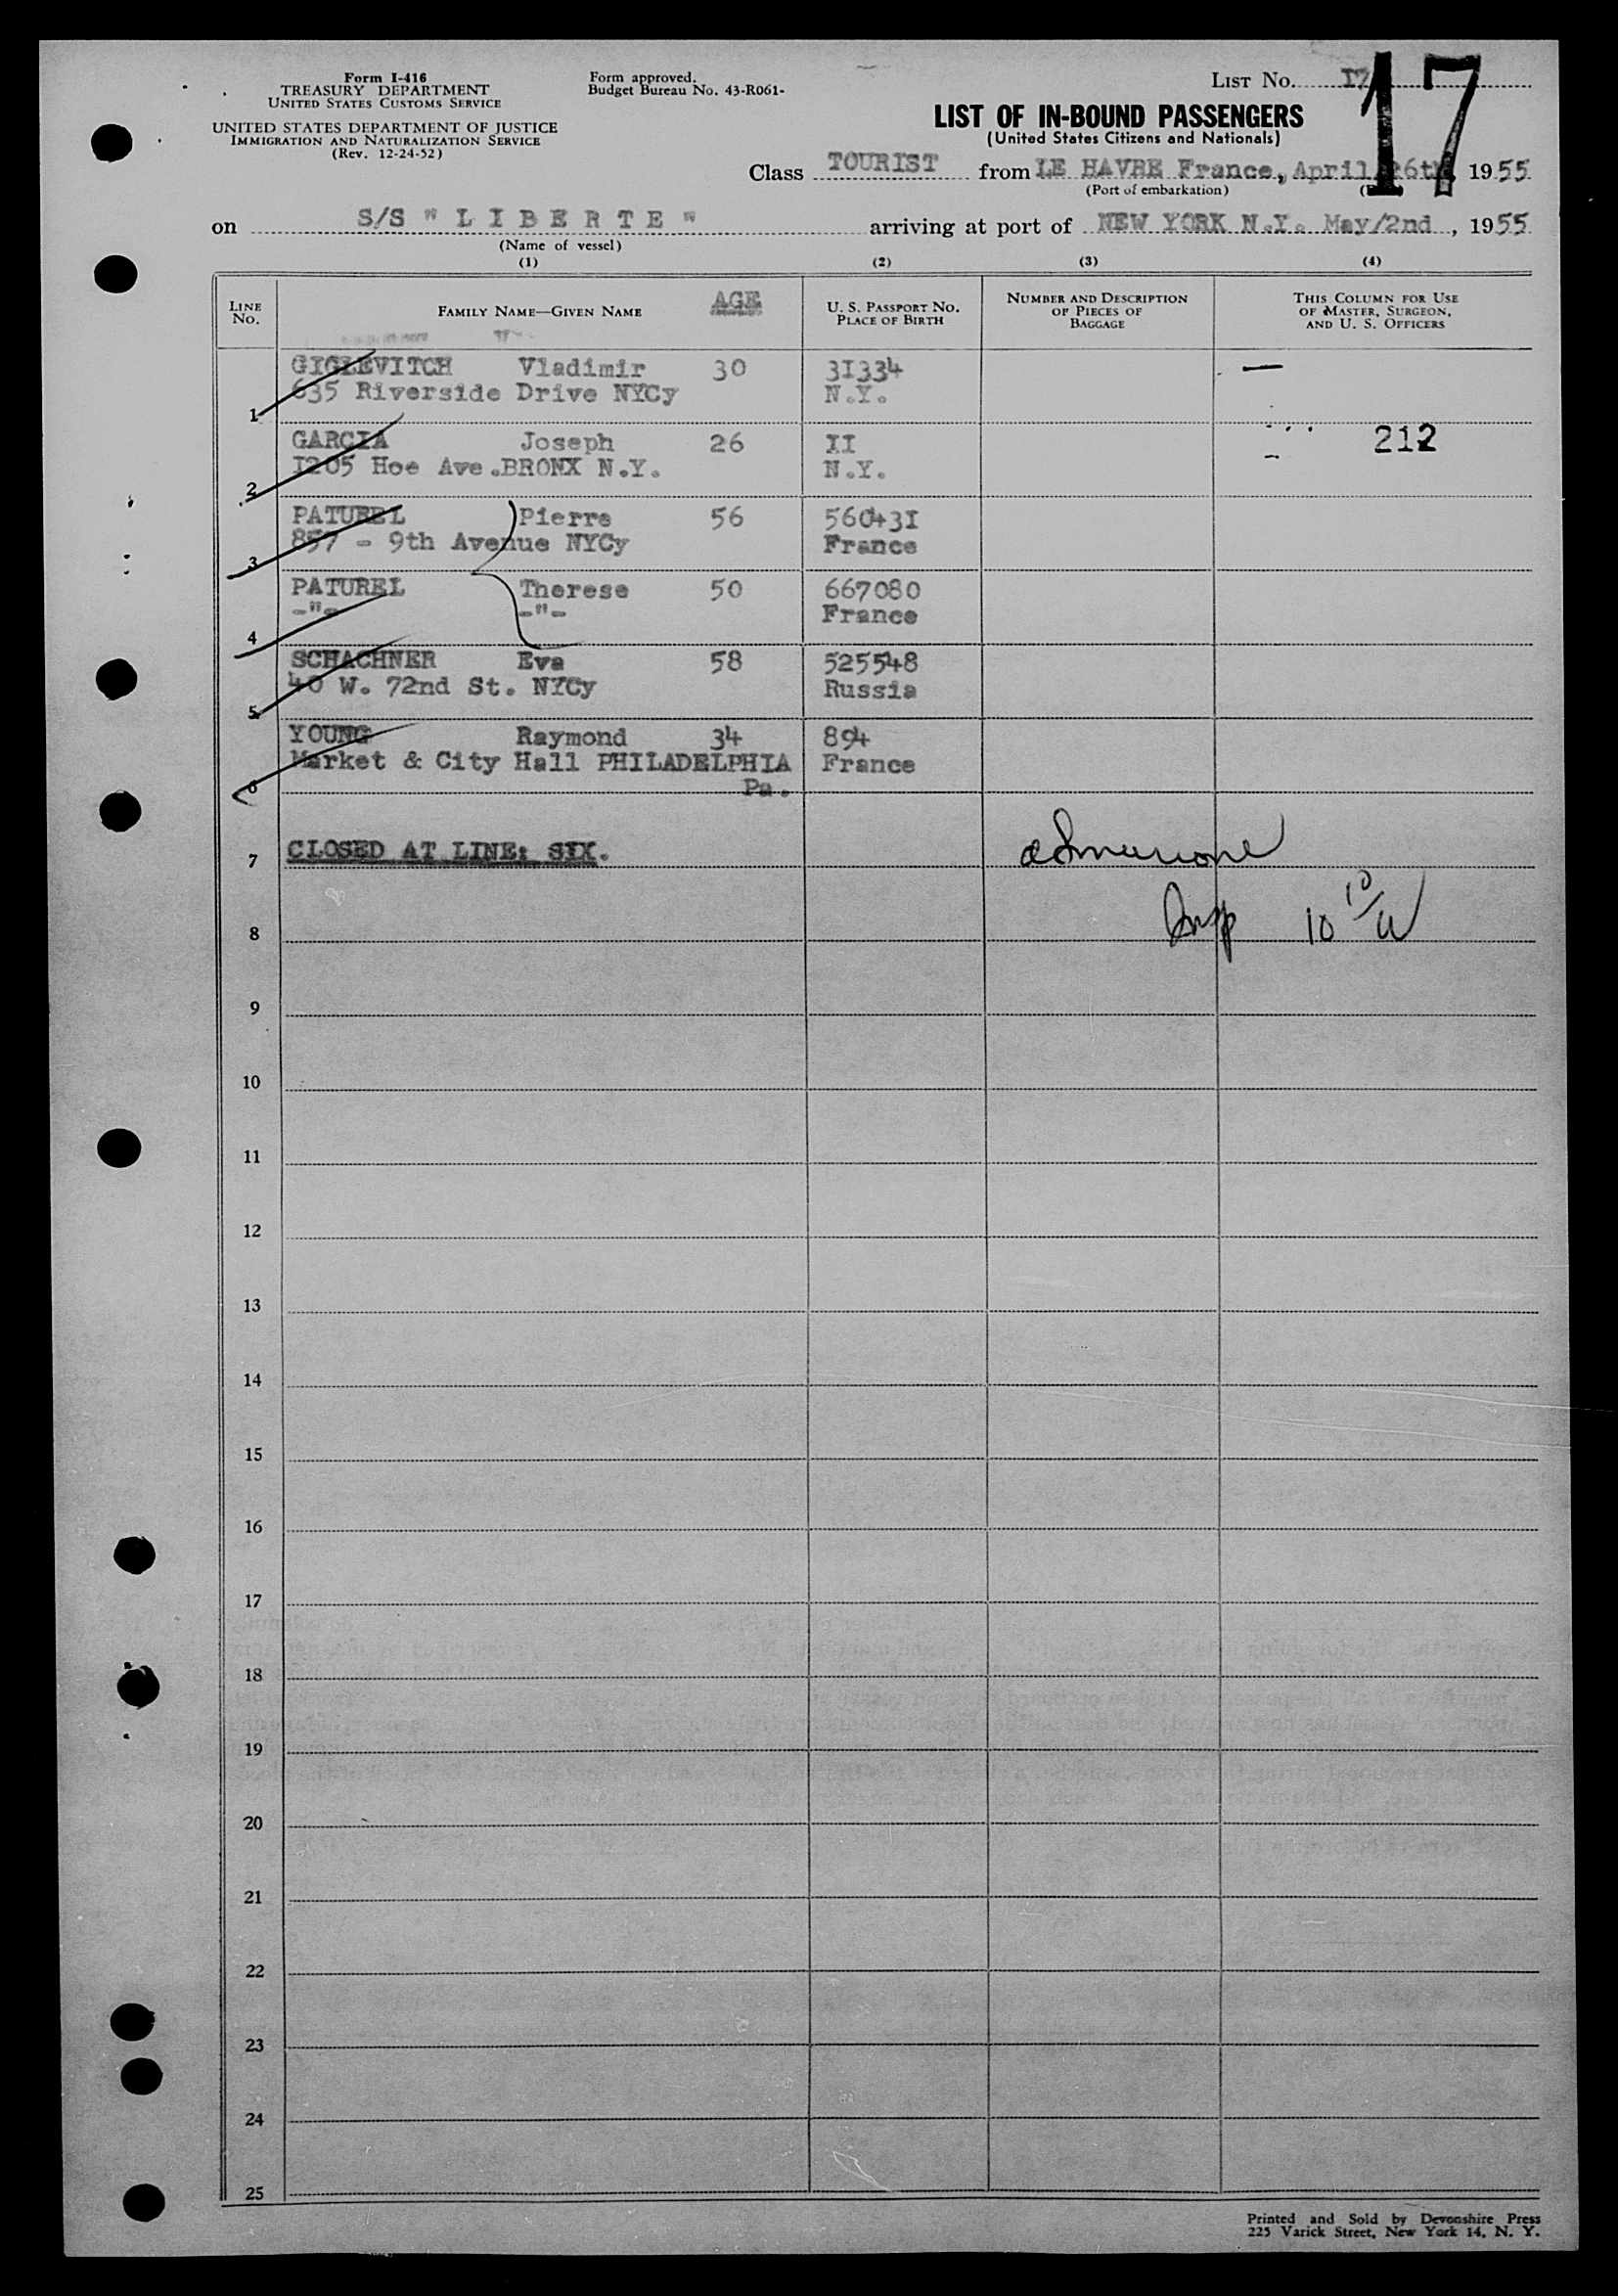 Form I-416
TREASURY DEPARTMENT
UNITED STATES CUSTOMS SERVICE
UNITED STATES DEPARTMENT OF JUSTICE
IMMIGRATION AND NATURALIZATION SERVICE
(Rev. 12-24-52)
Form approved.
Budget Bureau No. 43-R061-
LIST NO. 17
17
LIST OF IN-BOUND PASSENGERS
(United States Citizens and Nationals)
Class TOURIST from LE HAVRE France, April 26th 1955
(Port of embarkation)
on S/S " L I B E R T E " arriving at port of NEW YORK N.Y. May/2nd, 1955
(Name of vessel)
(1) (2) (3) (4)
LINE NO. FAMILY NAME—GIVEN NAME AGE U. S. PASSPORT NO. PLACE OF BIRTH NUMBER AND DESCRIPTION OF PIECES OF BAGGAGE THIS COLUMN FOR USE OF MASTER, SURGEON, AND U. S. OFFICERS
GIGLEVITCH Vladimir 30 3I334 —
1 635 Riverside Drive NYCy N.Y.
GARCIA Joseph 26 II 212
2 I205 Hoe Ave.BRONX N.Y. N.Y. —
PATUREL Pierre 56 56043I
3 857 - 9th Avenue NYCy France
PATUREL Therese 50 667080
4 -"- -"- France
SCHACHNER Eva 58 525548
5 40 W. 72nd St. NYCy Russia
YOUNG Raymond 34 894
Market & City Hall PHILADELPHIA France
6 Pa.
7 CLOSED AT LINE: SIX.
8 Insp 10 10/
9
10
11
12
13
14
15
16
17
18
19
20
21
22
23
24
25
Printed and Sold by Devonshire Press
225 Varick Street, New York 14, N. Y.